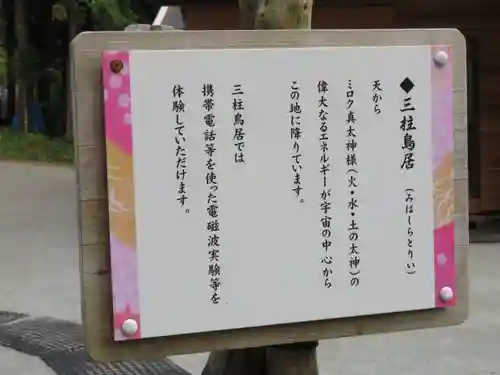 ◆三柱鳥居（みはしらとりい）
天から
ミロク真太神様（火・水・土の太神）の
偉大なるエネルギーが宇宙の中心から
この地に降りています。
三柱鳥居では
携帯電話等を使った電磁波実験等を
体験していただけます。